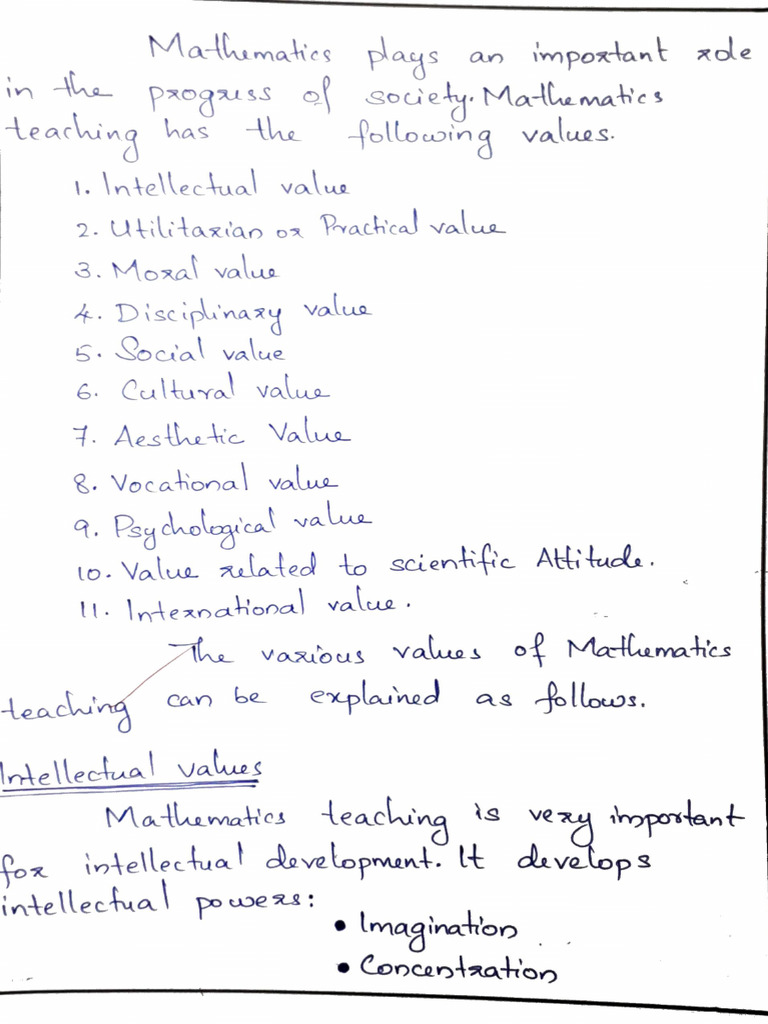 Mathematics plays an important role
in the progress of society. Mathematics
teaching has the following values.
1. Intellectual value
2. Utilitarian or Practical value
3. Moral value
4. Disciplinary value
5. Social value
6. Cultural value
7. Aesthetic Value
8. Vocational value
9. Psychological value
10. Value related to scientific Attitude.
11. International value.
The various values of Mathematics
teaching can be explained as follows.
Intellectual values
Mathematics teaching is very important
for intellectual development. It develops
intellectual powers:
• Imagination
• Concentration